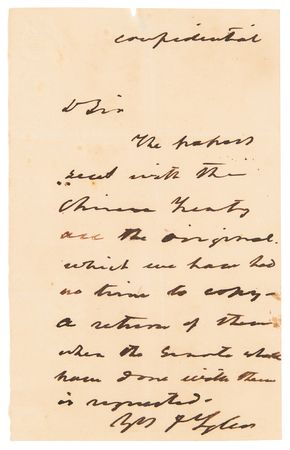 confidential
D Sir
The papers
sent with the
Chinese Treaty
are the original.
which we have had
no time to copy -
a return of them
when the Senate shall
have done with them
is requested.
Yrs J Tyler